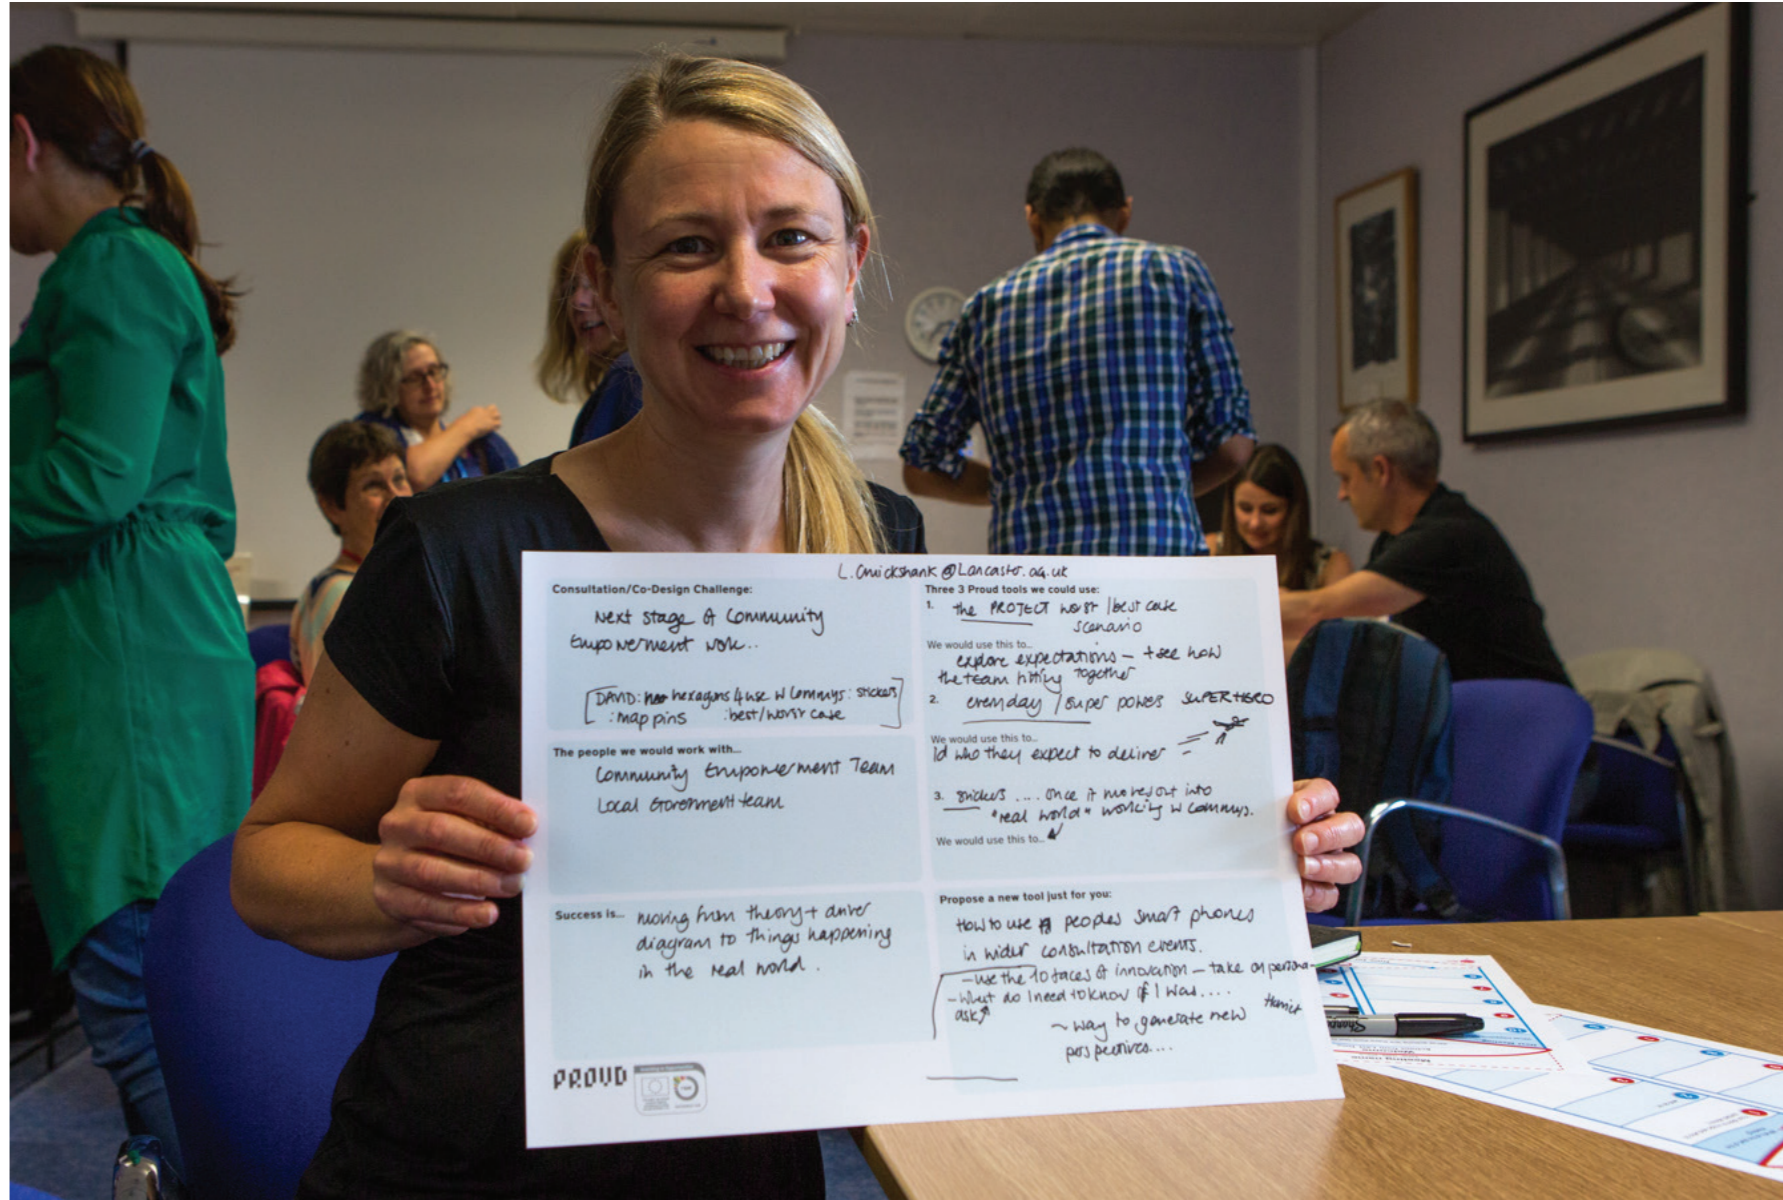 L.Cruickshank@Lancaster.ac.uk
Consultation/Co-Design Challenge:
Next stage of Community
Empowerment work..
DAVID: hexagons 4 use w Commys: stickers
: map pins : best/worst case
The people we would work with...
Community Empowerment Team
Local Government team
Success is... moving from theory + driver
diagram to things happening
in the real world.
PROUD
Three 3 Proud tools we could use:
1. the PROJECT worst/best case
scenario
We would use this to...
explore expectations - + see how
the team fitting together
2. everyday / super powers SUPERHERO
We would use this to...
id who they expect to deliver
3. stickers .... once it moves out into
"real world" working w Commys.
We would use this to...
Propose a new tool just for you:
How to use peoples smart phones
in wider consultation events.
- use the 10 faces of innovation - take on persona -
- What do I need to know if I was ....
ask
~ way to generate new
perspectives....
Sharpie
Meeting name